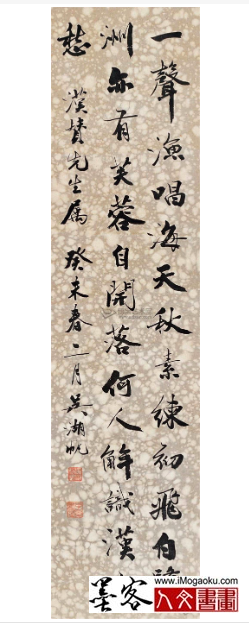 一聲漁唱海天秋素練初飛白
洲亦有芙蓉自開落何人解識漢
愁
先生属 癸未春二月吳湖帆
www.iMogaoku.com
墨客
人文書畫